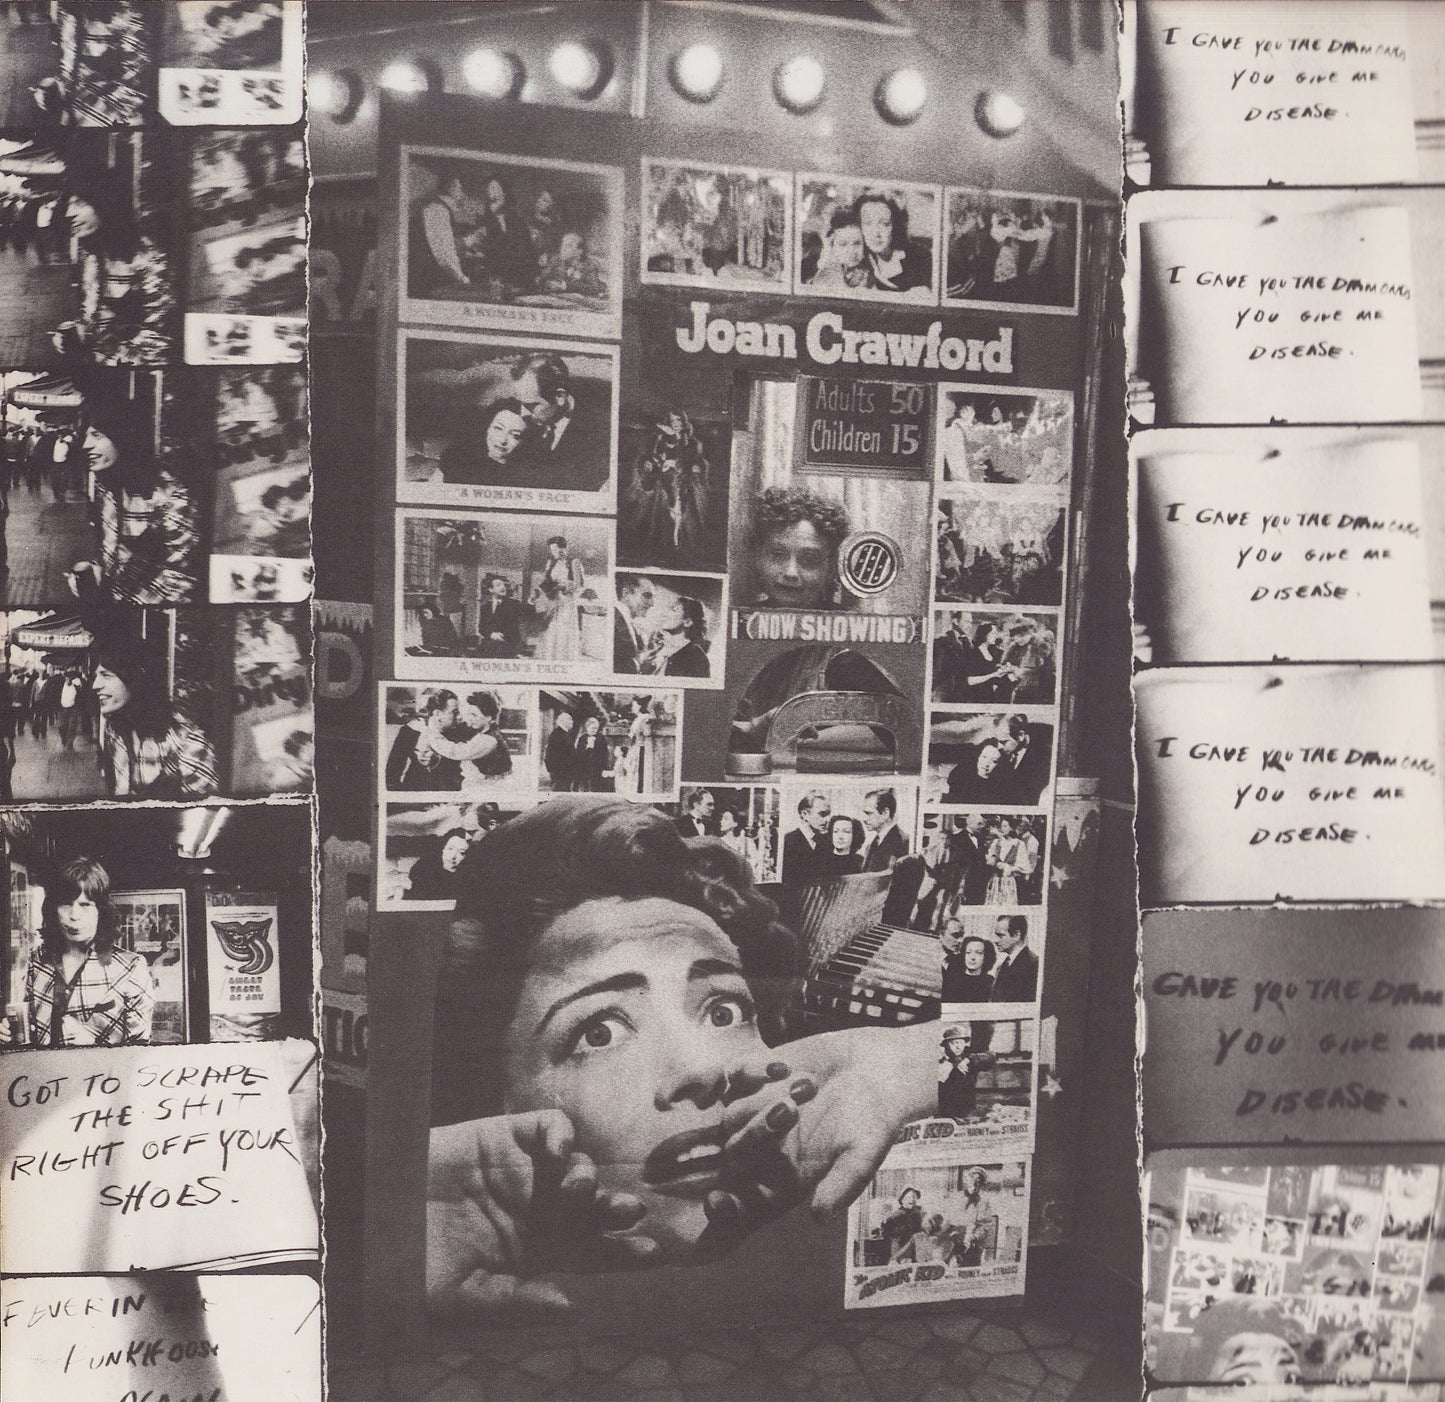 EXPERT REPAIRS
EXPERT REPAIRS
Dirty
SWEET
TASTE
OF JOY
GOT TO SCRAPE
THE SHIT
RIGHT OFF YOUR
SHOES.
FEVER IN
FUNKHOUSE
AGAIN
A WOMAN'S FACE
"A WOMAN'S FACE"
"A WOMAN'S FACE"
Joan Crawford
Adults 50
Children 15
(NOW SHOWING)
ATOMIC KID MICKEY ROONEY ROBERT STRAUSS
The ATOMIC KID ROONEY STRAUSS
I GAVE YOU THE DIAMONDS
YOU GIVE ME
DISEASE.
I GAVE YOU THE DIAMONDS
YOU GIVE ME
DISEASE.
I GAVE YOU THE DIAMONDS
YOU GIVE ME
DISEASE.
I GAVE YOU THE DIAMONDS
YOU GIVE ME
DISEASE.
GAVE YOU THE
YOU GIVE ME
DISEASE.